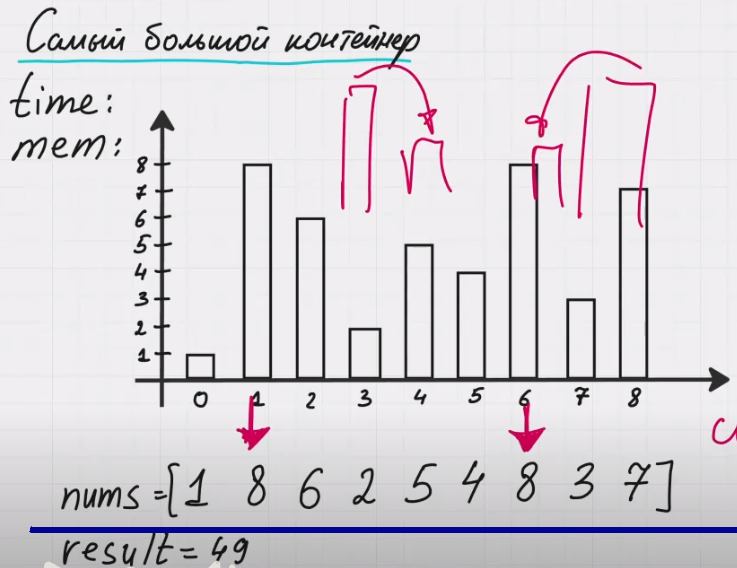 Самый большой контейнер
time:
mem:
8
7
6
5
4
3
2
1
0 1 2 3 4 5 6 7 8
nums = [1 8 6 2 5 4 8 3 7]
result = 49